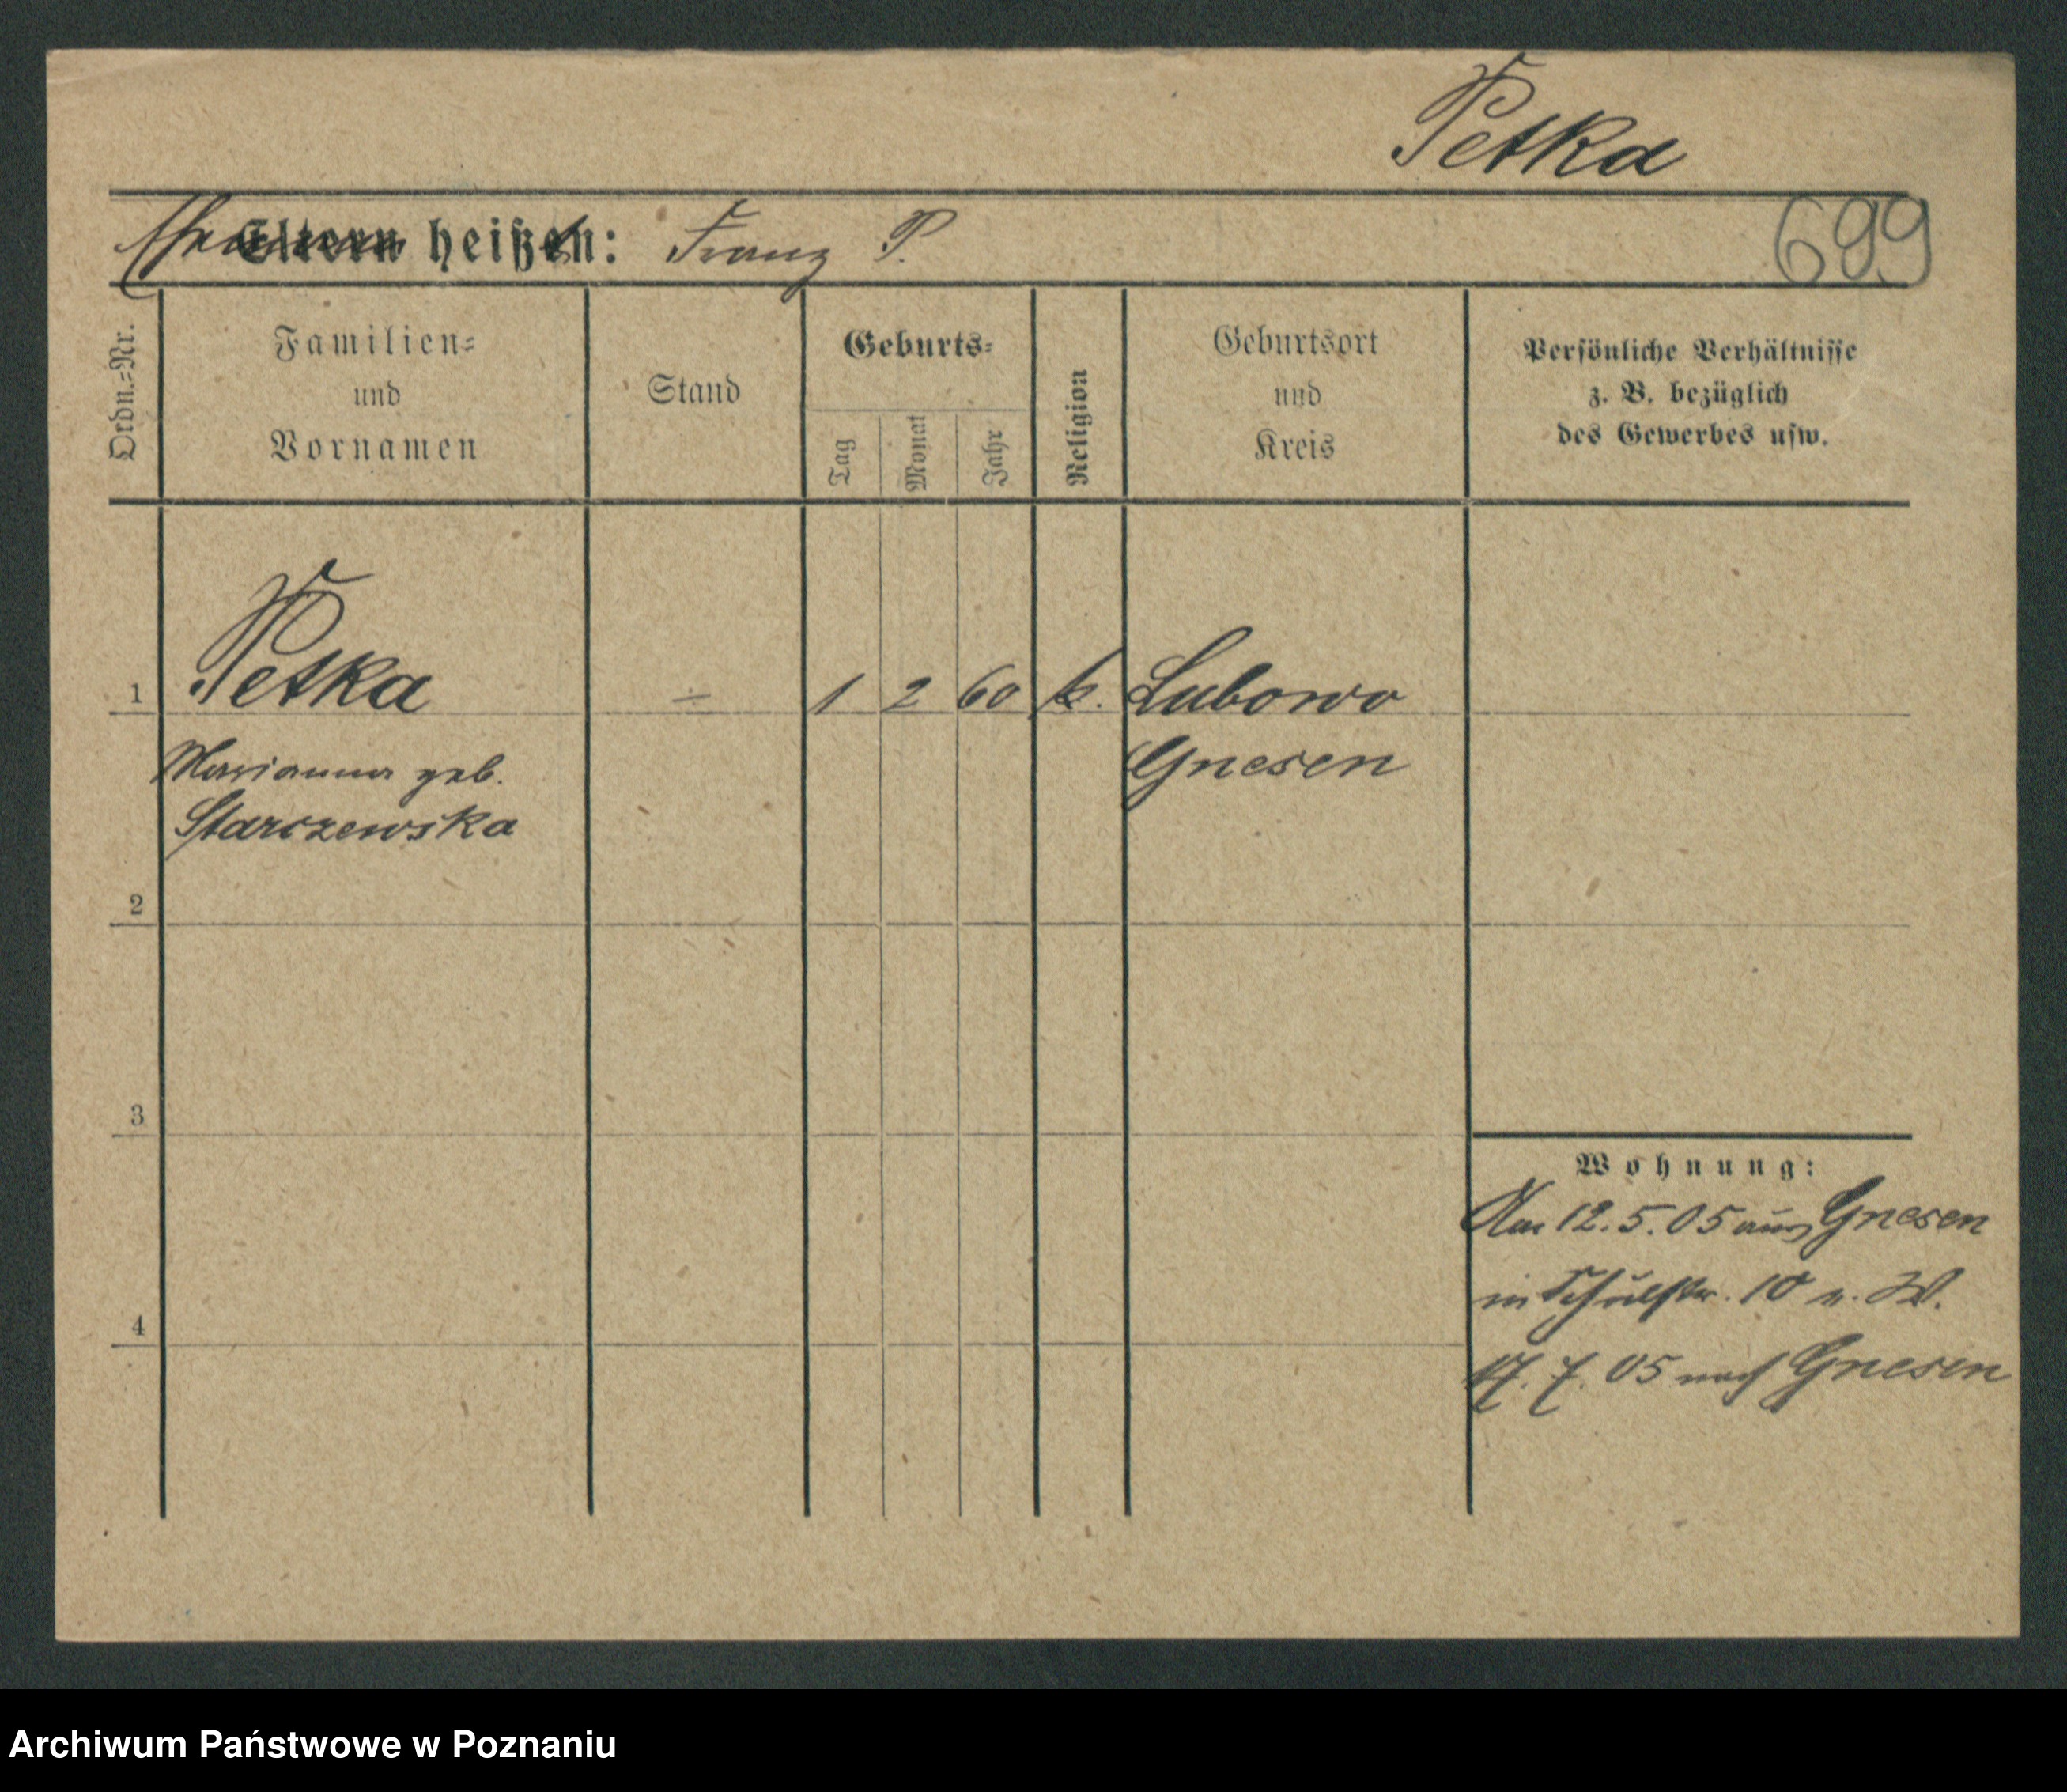 Petka
Ehemann heißt: Franz P.
699
Ordn.=Nr.
Familien=
und
Vornamen
Stand
Geburts=
Tag
Monat
Jahr
Religion
Geburtsort
und
Kreis
Persönliche Verhältnisse
z. B. bezüglich
des Gewerbes usw.
1
Petka
-
1
2
60
k.
Lubowo
Marianna geb.
Gnesen
Starczewska
2
3
4
Wohnung:
12.5.05 aus Gnesen
in Schulstr. 10 W.
17. 7. 05 nach Gnesen
Archiwum Państwowe w Poznaniu